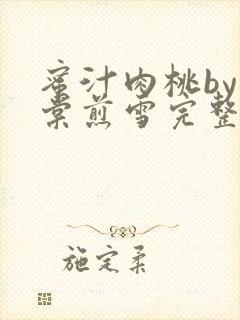 蜜汁肉桃by
棠煎雪完整
施定柔